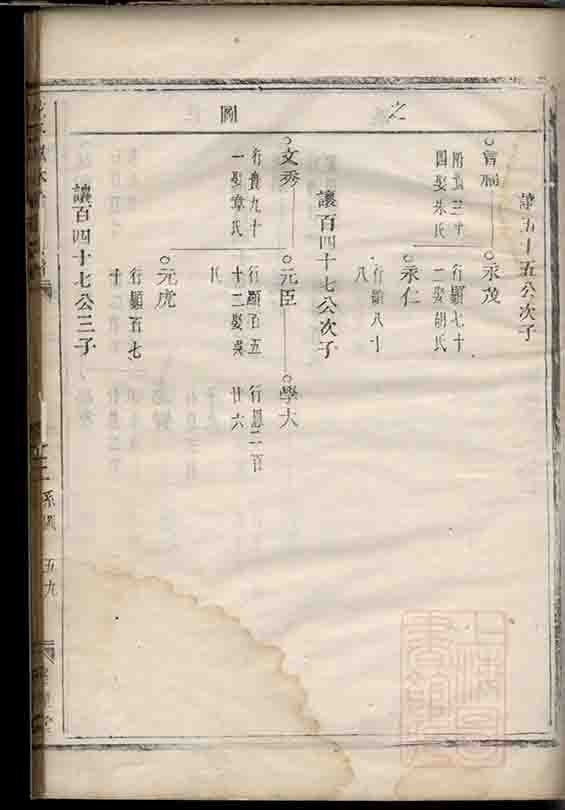 之
圖
讓五十五公次子
永茂
行顯七十
二娶胡氏
永仁
行顯八十
八
讓百四十七公次子
文秀
行貴九十
一娶章氏
元臣
行顯百五
十二娶吳
氏
學大
行恩二百
廿六
元虎
行顯百七
十
讓百四十七公三子
系圖
五九
上海圖
書館藏